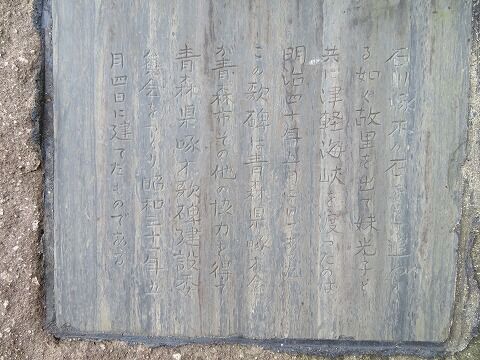 石川啄木が石をもて追わる
る如く故里を出て妹光子と
共に津軽海峡を渡ったのは
明治四十年五月
この歌碑は青森県啄木会
が青森市その他の協力を得
青森県啄木歌碑建設委
員会をつくり昭和三十一年五
月四日に建てたものである